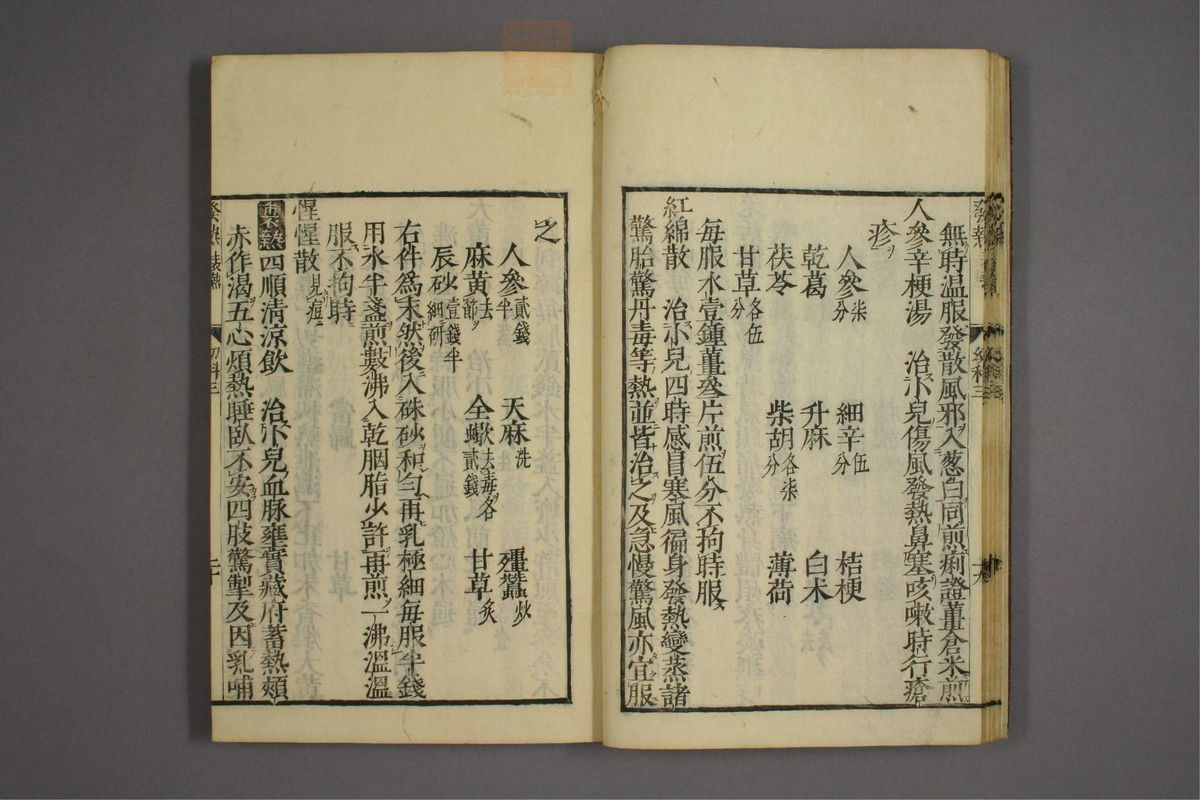 無時温服發散風邪入葱白同煎痢證薑倉米煎
人參辛梗湯 治小兒傷風發熱鼻塞咳嗽時行瘡
疹
人參柒分 細辛伍分 桔梗
乾葛 升麻 白术
茯苓 柴胡各柒分 薄荷
甘草各伍分
每服水壹鍾薑叄片煎伍分不拘時服
紅綿散 治小兒四時感冒寒風徧身發熱變蒸諸
驚胎驚丹毒等熱並皆治之及急慢驚風亦宜服
之
人參貳錢半 天麻洗 殭蠶炒
麻黄去節 全蠍去毒各貳錢 甘草炙
辰砂壹錢半細研
右件爲末然後入硃砂和勻再乳極細每服半錢
用水半盞煎數沸入乾胭脂少許再煎一沸溫溫
服不拘時
惺惺散見痘
裏熱四順清涼飲 治小兒血脉壅實藏府蓄熱頰
赤作渴五心煩熱睡臥不安四肢驚掣及因乳哺